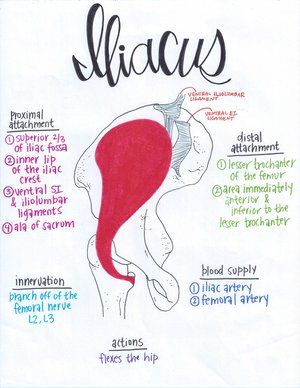 Iliacus
VENTRAL ILIOLUMBAR
LIGAMENT
VENTRAL SI
LIGAMENT
proximal
attachment
① superior 2/3
of iliac fossa
② inner lip
of the iliac
crest
③ ventral SI
& iliolumbar
ligaments
④ ala of sacrum
distal
attachment
① lesser trochanter
of the femur
② area immediately
anterior &
inferior to the
lesser trochanter
innervation
branch off of the
femoral nerve
L2, L3
blood supply
① iliac artery
② femoral artery
actions
flexes the hip